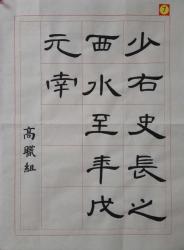 少右史長之
西水至年戊
元幸
高職組
7